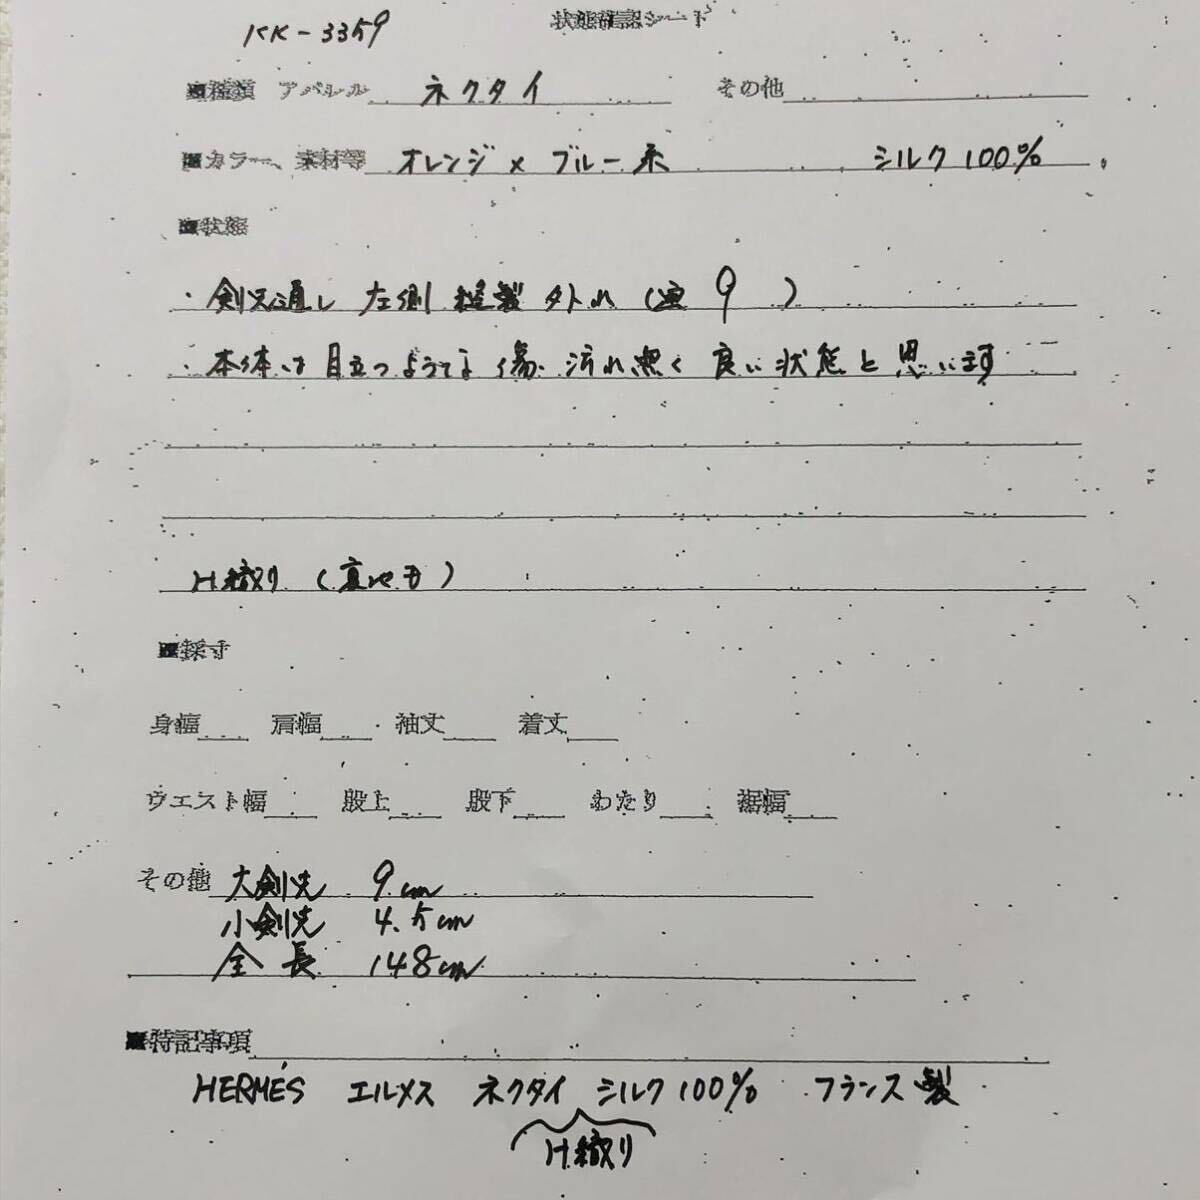 KK-3359 状態確認シート
■種類 アパレル ネクタイ その他
■カラー、素材等 オレンジ×ブルー系 シルク100%
■状態
・剣先通し 左側 縫製 外れ (画 9 )
・本体は目立つような傷・汚れ無く良い状態と思います
H織り (裏地も)
■採寸
身幅 肩幅 袖丈 着丈
ウエスト幅 股上 股下 わたり 裾幅
その他 大剣先 9cm
小剣先 4.5cm
全長 148cm
■特記事項
HERMÈS エルメス ネクタイ シルク100% フランス製
H織り